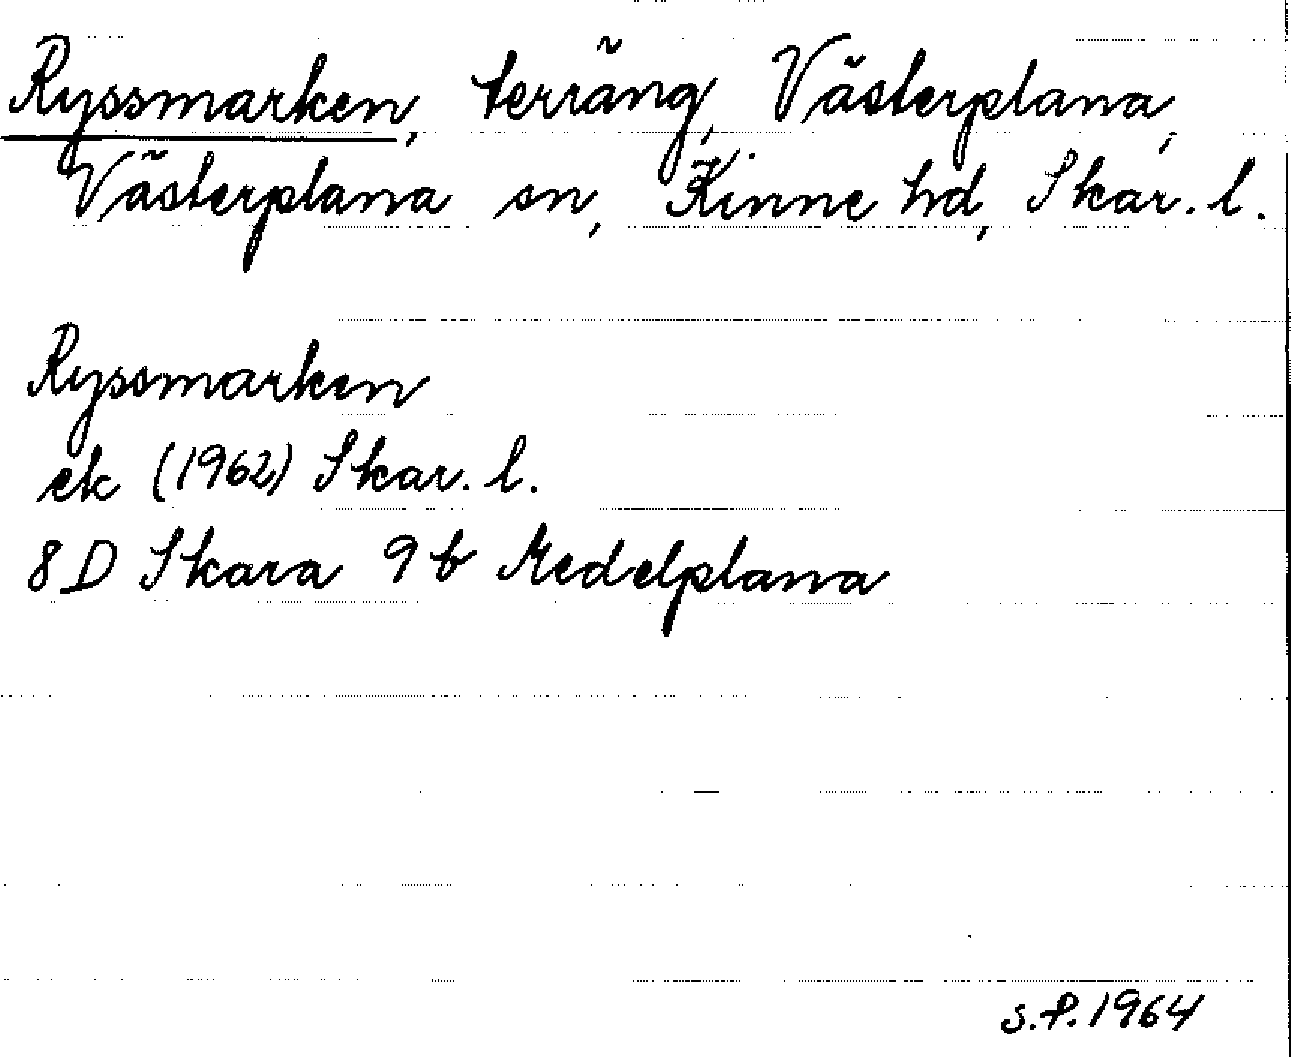 Ryssmarken, terräng, Västerplana,
Västerplana sn, Kinne hd, Skar. l.
Ryssmarken
ek (1962) Skar. l.
8 D Skara 9 b Medelplana
S.P. 1964